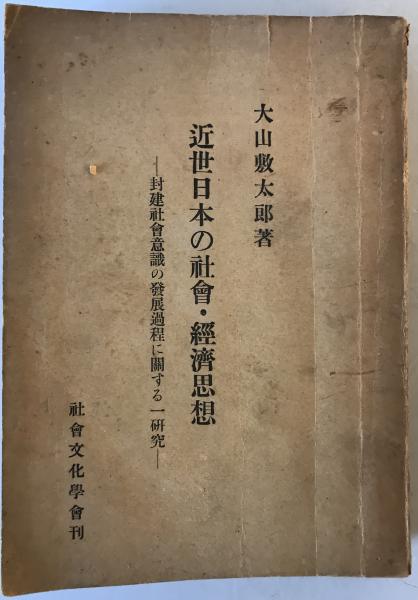 大山敷太郎著
近世日本の社會・經濟思想
―封建社會意識の發展過程に關する一研究―
社會文化學會刊